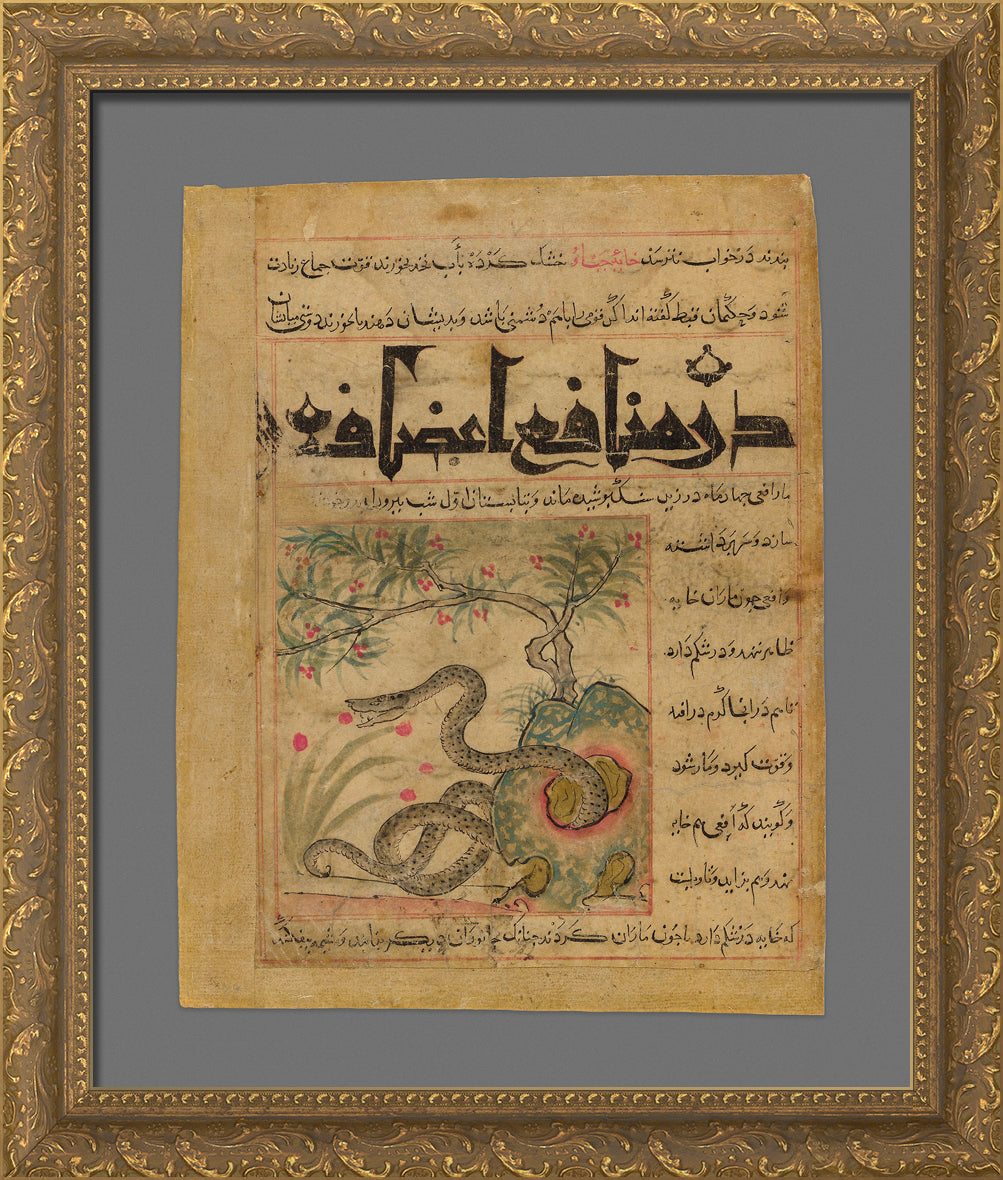 بندند در خواب نترسد خایه خشک کرده بآب نخود بخورند قوت جماع زیادت
شود و حکیمان قبط گفته اند اگر قومی را با هم دشمنی باشد و بدیشان دهند تا خورند دوستی میانشان
در منافع اعضا افعی
مار افعی چهار ماه در زمین سنگ پوشیده ماند و بتابستان اول شب بیرون
سازد و سر برداشته
و افعی چون ماران خایه
ظاهر نهد و در شکم دارد
تا هم در آنجا کرم در افتد
و قوت گیرد و مار شود
و گویند که افعی هم خایه
نهد و هم بزاید و تاویلست
که خایه در شکم دارد یا چون ماران کردند چنانک جانوران دیگر